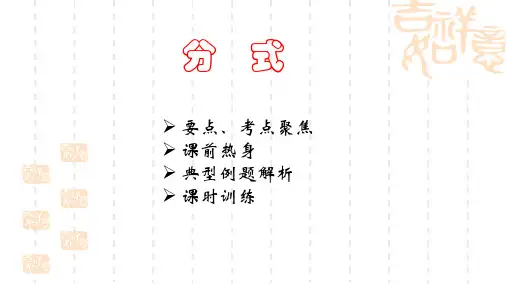 吉祥如意
分 式
➢ 要点、考点聚焦
➢ 课前热身
➢ 典型例题解析
➢ 课时训练